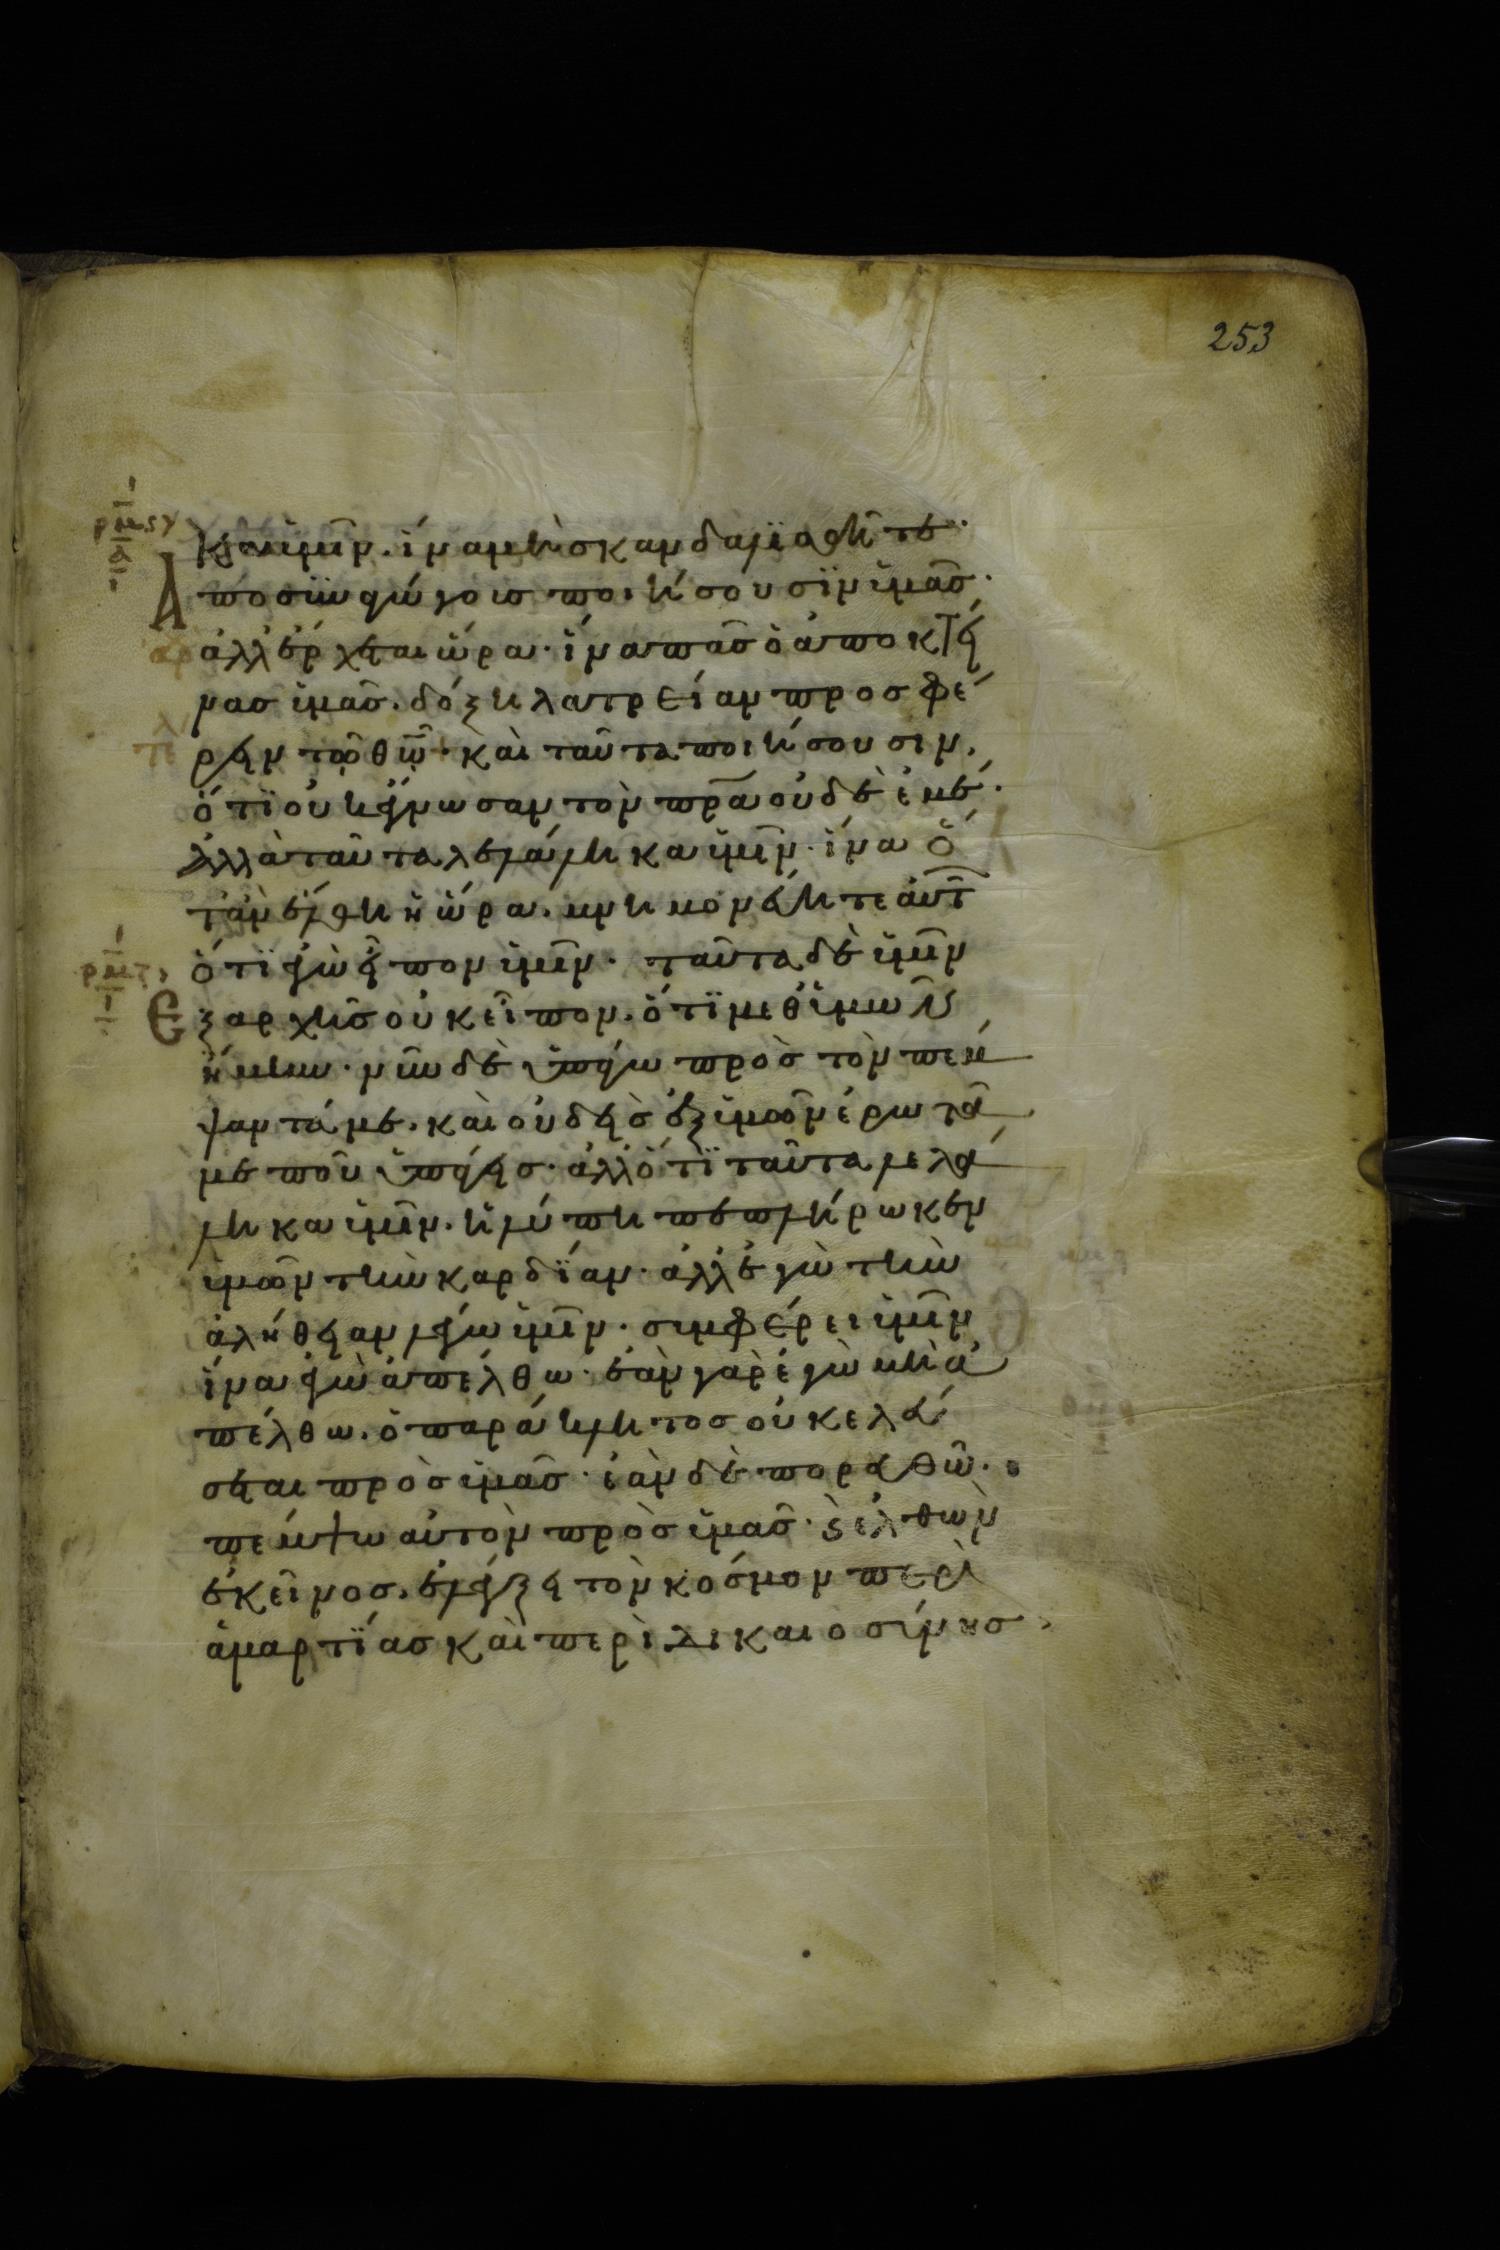 253
κα ϊμῖν. ἵνα μὴ σκανδαλϊσθῆτε·
Ἀποσϋναγώγοισ ποιήσουσϊν ἰμᾶσ·
ἀλλ' ἔρχεται ὥρα· ἵνα πᾶσ ὁ ἀποκτεί
νασ ἰμᾶσ. δόξη λατρείαν προσφέ
ρειν τῶ θῶ· καὶ ταῦτα ποιήσουσιν.
ὅτϊ οὐκ ἔγνωσαν τὸν πρα οὐδὲ ἐμέ·
ἀλλὰ ταῦτα λελάληκα ἰμῖν· ἵνα ὅ
τὰν ἔλθη ἡ ὥρα. μνημονεύητε αὐτ
ὅτϊ ἐγὼ εἶπον ἰμῖν· ταῦτα δὲ ἰμῖν
Ἐξαρχῆσ οὐκ εἶπον. ὅτϊ μεθ' ἰμῶν
ἤμην· νῦν δὲ ὑπάγω πρὸσ τὸν πέμ
ψαντά με. καὶ οὐδεὶσ ἐξ ἰμῶν ἐρωτᾶ
με ποῦ ὑπάγεισ· ἀλλ' ὅτϊ ταῦτα λελά
ληκα ἰμῖν. ἡ λύπη πεπλήρωκεν
ἰμῶν τὴν καρδϊαν· ἀλλ' ἐγὼ τὴν
ἀλήθειαν λέγω ἰμῖν· σιμφέρει ἰμῖν
ἵνα ἐγὼ ἀπέλθω· ἐὰν γὰρ ἐγὼ μὴ ἀ
πέλθω. ὁ παράκλητοσ οὐκ ελεύ
σεται πρὸσ ἰμᾶσ· ἐὰν δὲ πορευθῶ.
πέμψω αὐτὸν πρὸσ ἰμᾶσ· ϗ ἐλθὼν
ἐκεῖνοσ. ἐλέγξει τὸν κόσμον περὶ
ἁμαρτϊασ καὶ περὶ δικαιοσίνησ